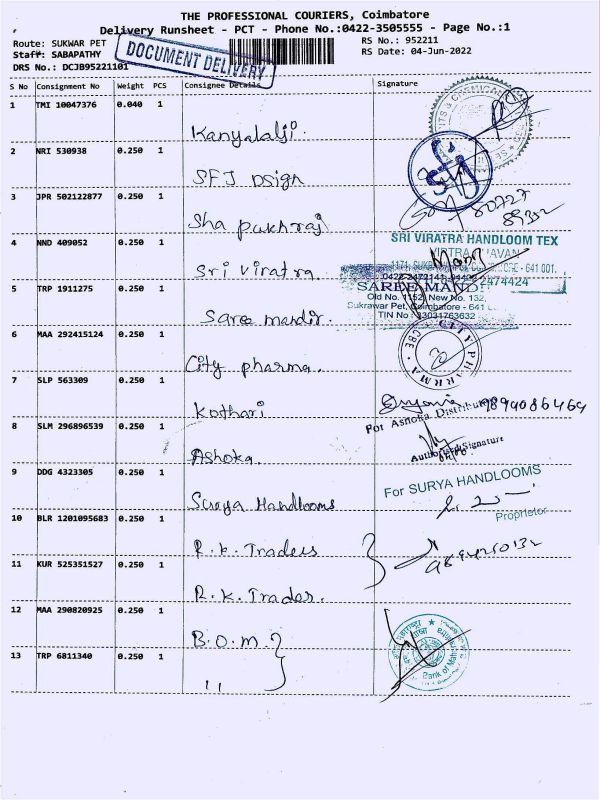 THE PROFESSIONAL COURIERS, Coimbatore
Delivery Runsheet - PCT - Phone No.:0422-3505555 - Page No.:1
Route: SUKWAR PET RS No. : 952211
Staff: SABAPATHY RS Date: 04-Jun-2022
DRS No.: DCJB95221101
DOCUMENT DELIVERY
S No Consignment No Weight PCS Consignee Details Signature
1 TMI 10047376 0.040 1
Kanyalalji.
2 NRI 530938 0.250 1
SFJ Dsign
3 JPR 502122877 0.250 1
Sha pukhraj
4 NND 409052 0.250 1
SRI VIRATRA HANDLOOM TEX
Sri Viratra
5 TRP 1911275 0.250 1
SAREE MANDIR
Old No. 1152, New No. 132,
Sukrawar Pet, Coimbatore - 641
TIN No : 33031763632
Saree mandir.
6 MAA 292415124 0.250 1
CITY PHARMA CBE
City pharma.
7 SLP 563309 0.250 1
Kothari
For Ashoka Distributors
8 SLM 296896539 0.250 1
Authorised Signature
Ashoka.
9 DDG 4323305 0.250 1
For SURYA HANDLOOMS
Surya Handlooms
Proprietor
10 BLR 1201095683 0.250 1
R.k. Traders
11 KUR 525351527 0.250 1
R.k. Trader.
12 MAA 290820925 0.250 1
B.O.M
13 TRP 6811340 0.250 1
,,
Bank of Mah